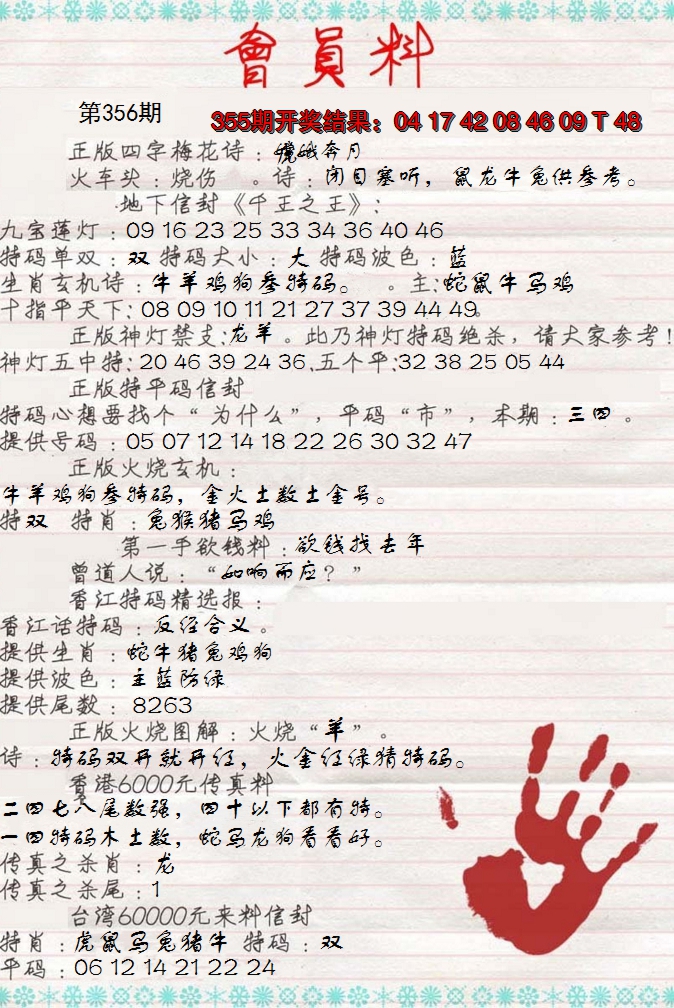 會員料
第356期
355期开奖结果：04 17 42 08 46 09 T 48
正版四字梅花诗：嫦娥奔月
火车头：烧伤 。诗：闭目塞听，鼠龙牛兔供参考。
地下信封《千王之王》：
九宝莲灯：09 16 23 25 33 34 36 40 46
特码单双：双 特码大小：大 特码波色：蓝
生肖玄机诗：牛羊鸡狗参特码。 。主：蛇鼠牛马鸡
十指平天下：08 09 10 11 21 27 37 39 44 49。
正版神灯禁支：龙羊 。此乃神灯特码绝杀，请大家参考！
神灯五中特：20 46 39 24 36.五个平：32 38 25 05 44
正版特平码信封
特码心想要找个“为什么”，平码“市”，本期：三四 。
提供号码：05 07 12 14 18 22 26 30 32 47
正版火烧玄机：
牛羊鸡狗参特码，金火土数土金号。
特双 特肖：兔猴猪马鸡
第一手欲钱料：欲钱找去年
曾道人说：“如响而应？”
香江特码精选报：
香江话特码：反经合义。
提供生肖：蛇牛猪兔鸡狗
提供波色：主蓝防绿
提供尾数：8263
正版火烧图解：火烧“羊”。
诗：特码双开就开红，火金红绿猜特码。
香港6000元传真料
二四七八尾数强，四十以下都有特。
一四特码木土数，蛇马龙狗看看好。
传真之杀肖：龙
传真之杀尾：1
台湾60000元来料信封
特肖：虎鼠马兔猪牛 特码：双
平码：06 12 14 21 22 24